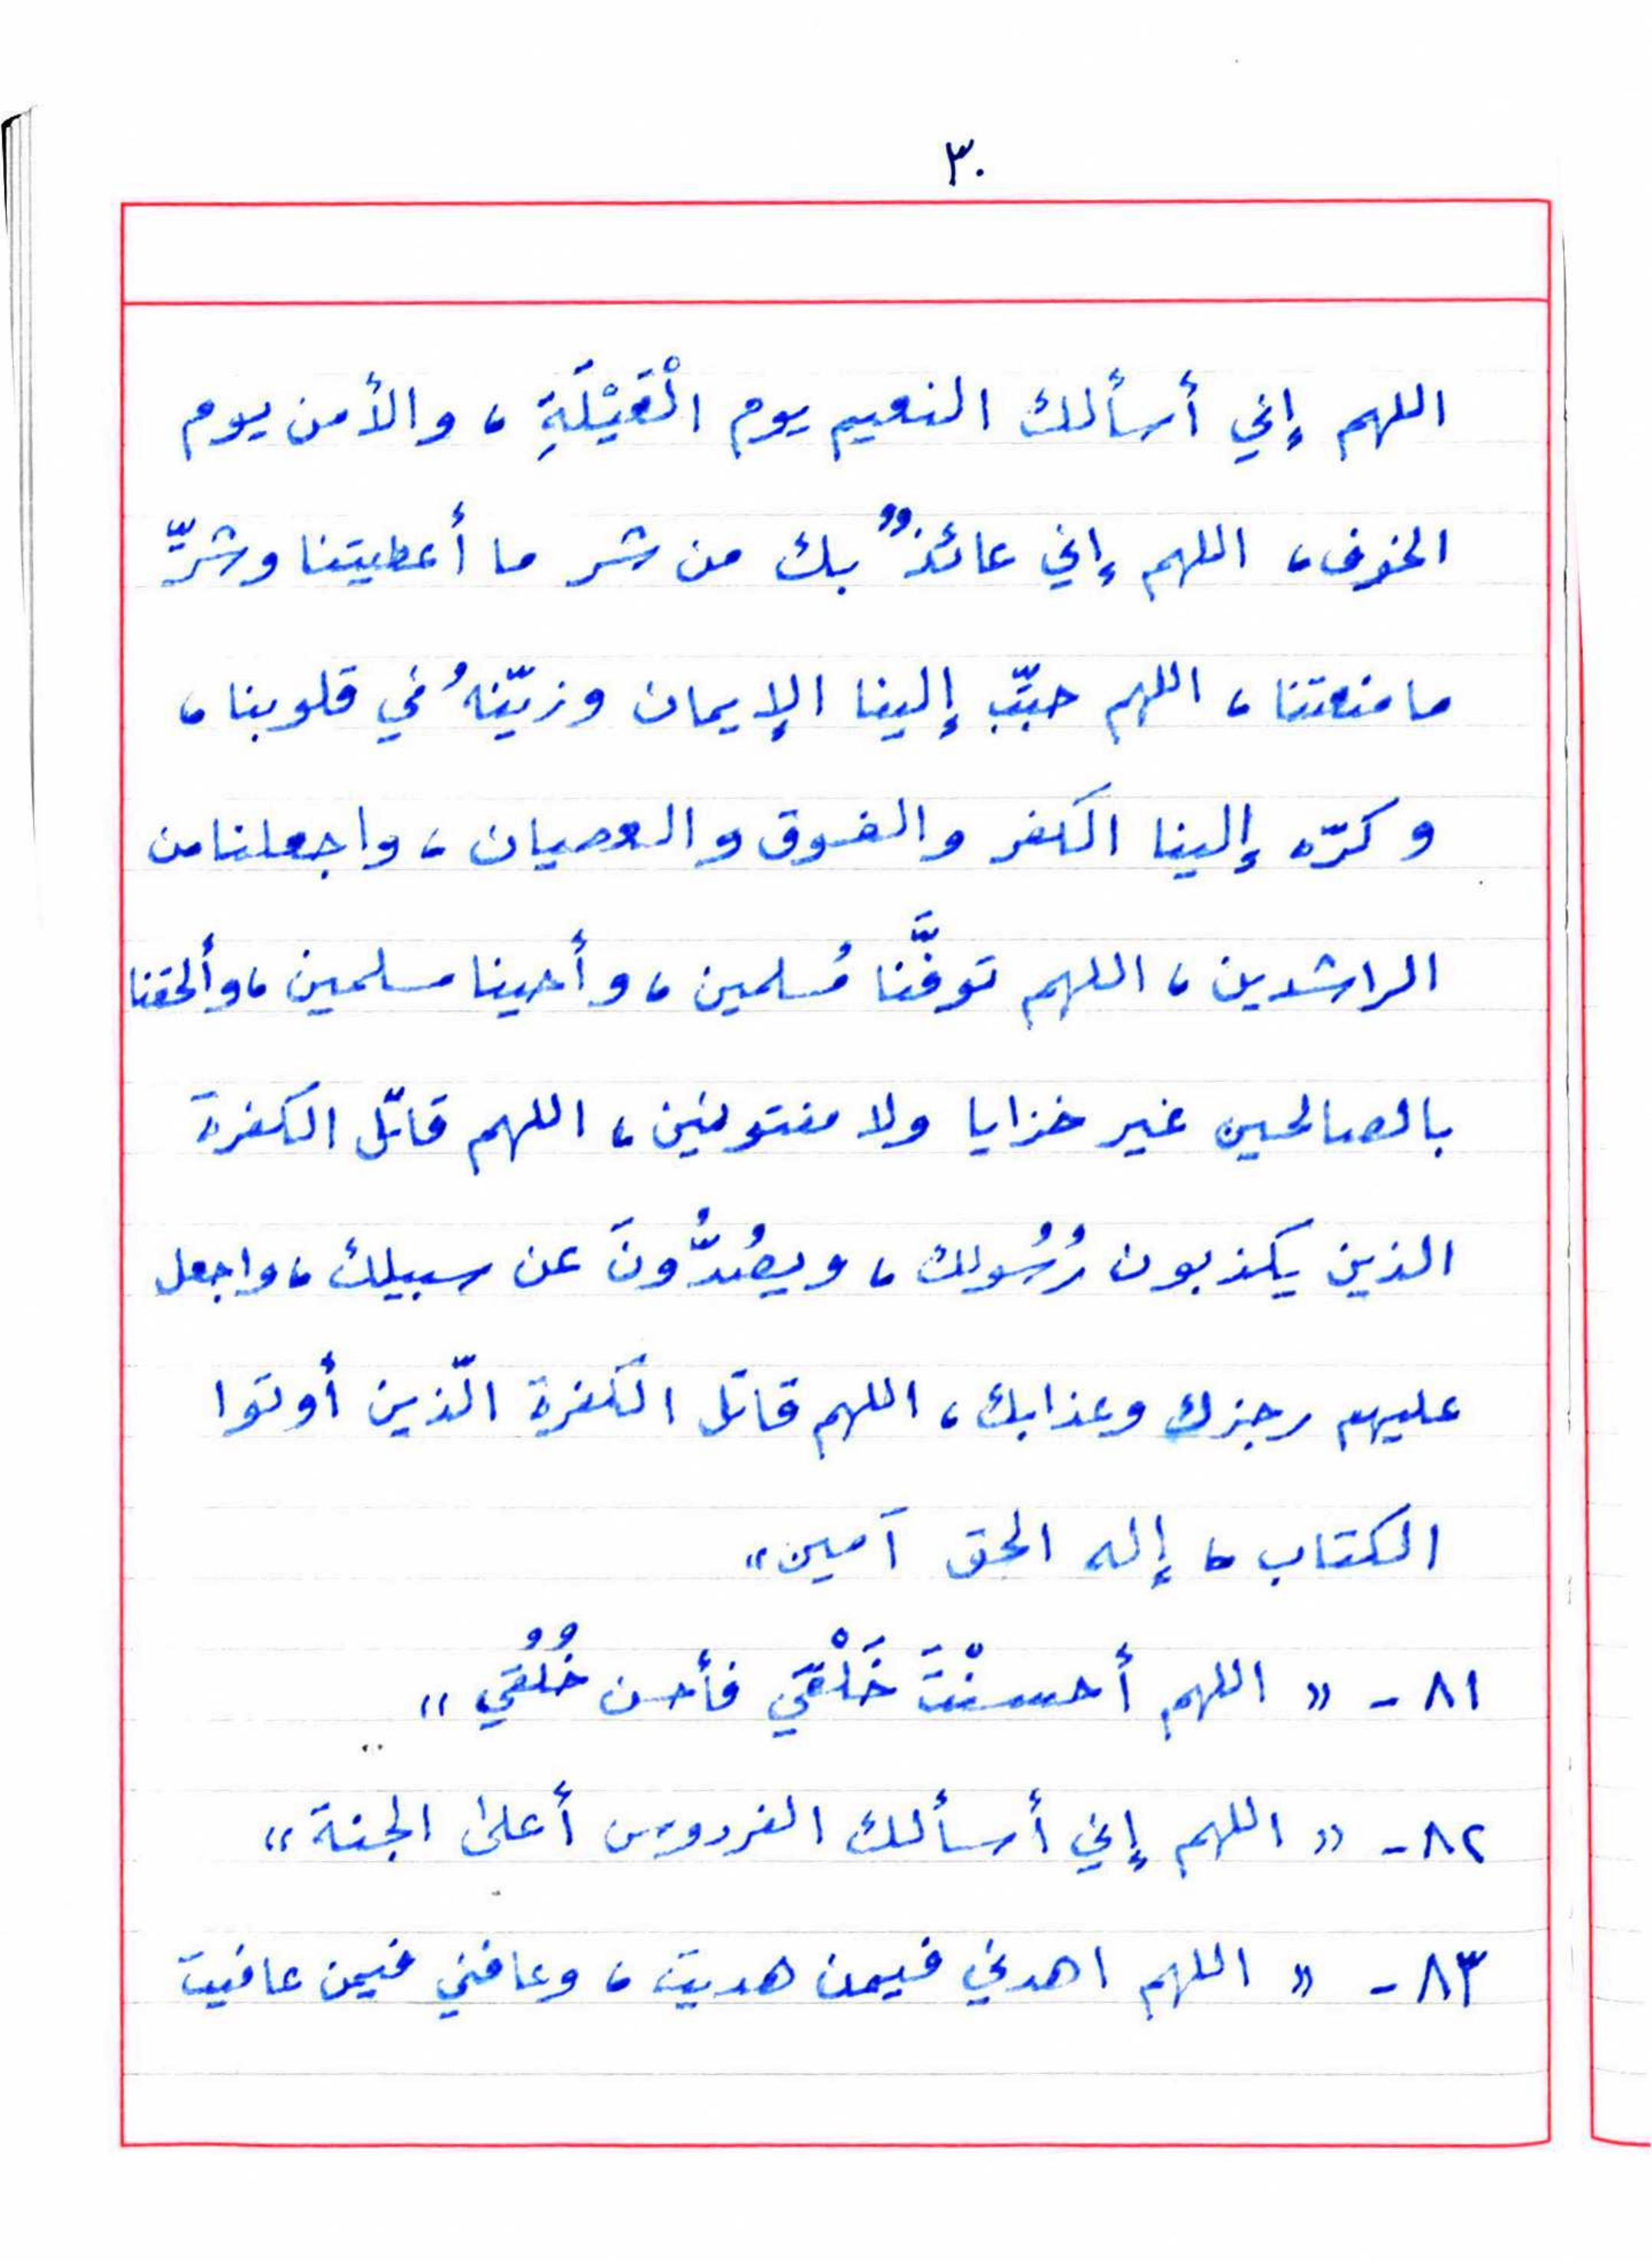 ٣٠
اللهم إني أسألك النعيم يوم الْعَيْلَةِ ، والأمن يوم
الخوف ، اللهم إني عائذٌ بك من شر ما أعطيتنا وشرِّ
ما منعتنا ، اللهم حبِّب إلينا الإيمان وزيّنهُ في قلوبنا ،
وكرّه إلينا الكفر والفسوق والعصيان ، واجعلنا من
الراشدين ، اللهم توفَّنا مُسلمين ، وأحينا مسلمين ، وألحقنا
بالصالحين غير خزايا ولا مفتونين ، اللهم قاتل الكفرة
الذين يكذبون رُسُولك ، ويصُدُّونَ عن سبيلك ، واجعل
عليهم رجزك وعذابك ، اللهم قاتل الكفرة الّذين أوتوا
الكتاب ، إله الحق آمين"
٨١ - " اللهم أحسنْتَ خَلْقَي فأحسن خُلُقي "
٨٢ - " اللهم إني أسألك الفردوس أعلى الجنة "
٨٣ - " اللهم اهدني فيمن هديت ، وعافني فيمن عافيت